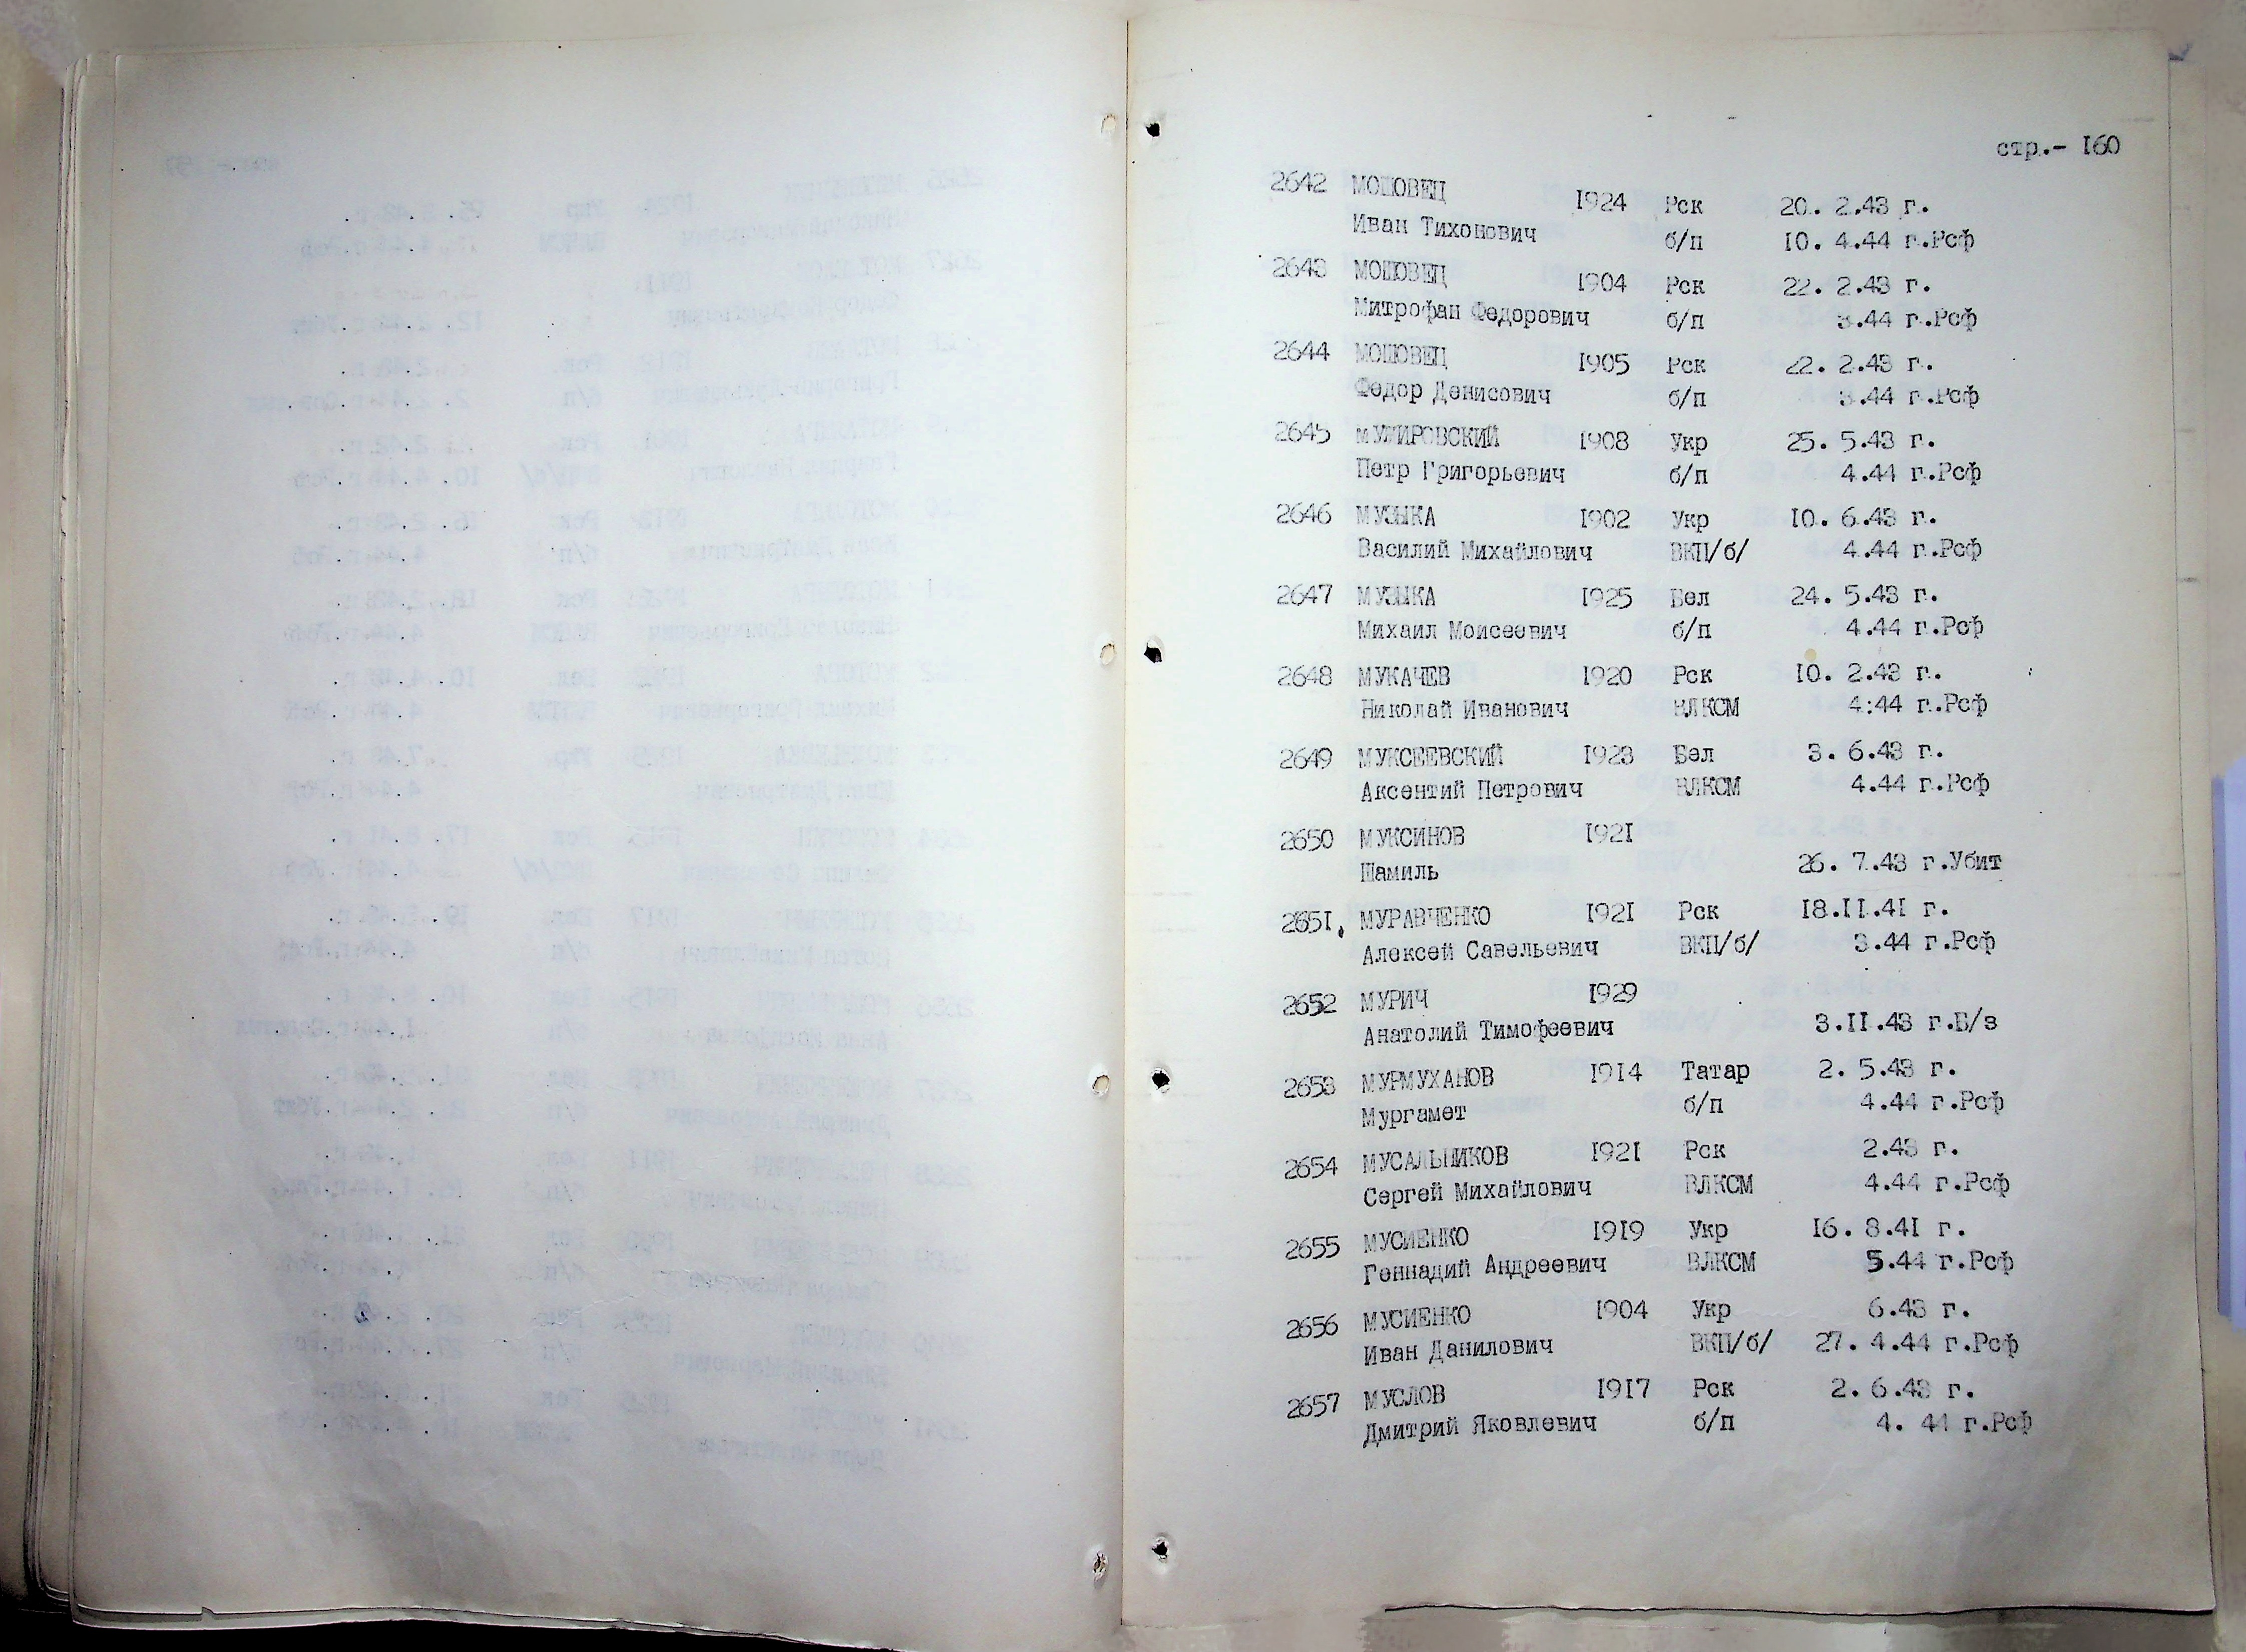 стр.- I60
2642 МОШОВЕЦ I924 Рск 20. 2.43 г.
Иван Тихонович б/п I0. 4.44 г.Рсф
2643 МОШОВЕЦ I904 Рск 22. 2.43 г.
Митрофан Федорович б/п 3.44 г.Рсф
2644 МОШОВЕЦ I905 Рск 22. 2.43 г.
Федор Денисович б/п 3.44 г.Рсф
2645 I908 Укр 25. 5.43 г.
Петр Григорьевич б/п 4.44 г.Рсф
2646 МУЗЫКА I902 Укр I0. 6.43 г.
Василий Михайлович ВКП/б/ 4.44 г.Рсф
2647 МУЗЫКА I925 Бел 24. 5.43 г.
Михаил Моисеевич б/п 4.44 г.Рсф
2648 МУКАЧЕВ I920 Рск I0. 2.43 г.
Николай Иванович ВЛКСМ 4:44 г.Рсф
2649 МУКСЕЕВСКИЙ I923 Бел 3. 6.43 г.
Аксентий Петрович ВЛКСМ 4.44 г.Рсф
2650 МУКСИНОВ I92I
Шамиль 26. 7.43 г.Убит
265I. МУРАВЧЕНКО I92I Рск I8.II.4I г.
Алексей Савельевич ВКП/б/ 3.44 г.Рсф
2652 МУРИЧ I929
Анатолий Тимофеевич 3.II.43 г.Б/з
2653 МУРМУХАНОВ I9I4 Татар 2. 5.43 г.
Мургамет б/п 4.44 г.Рсф
2654 МУСАЛЬНИКОВ I92I Рск 2.43 г.
Сергей Михайлович ВЛКСМ 4.44 г.Рсф
2655 МУСИЕНКО I9I9 Укр I6. 8.4I г.
Геннадий Андреевич ВЛКСМ 5.44 г.Рсф
2656 МУСИЕНКО I904 Укр 6.43 г.
Иван Данилович ВКП/б/ 27. 4.44 г.Рсф
2657 МУСЛОВ I9I7 Рск 2. 6.43 г.
Дмитрий Яковлевич б/п 4. 44 г.Рсф